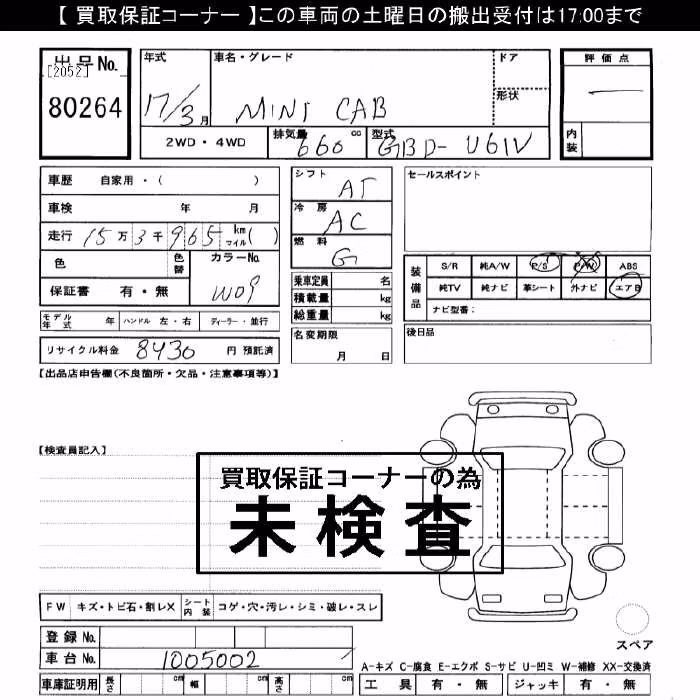 【 買取保証コーナー 】この車両の土曜日の搬出受付は17:00まで
出品No. 年式 車名・グレード ドア 評価点
[2052]
80264 17/3月 MINI CAB 形状
2WD・4WD 排気量 660 cc 型式 GBD-U61V 内装
車歴 自家用・( ) シフト AT セールスポイント
車検 年 月 冷房 AC
走行 15万3千965 km マイル( ) 燃料 G
色 色替 カラーNo. W09 装備品 S/R 純A/W P/S P/W ABS
保証書 有・無 乗車定員 名 純TV 純ナビ 革シート 外ナビ エアB
積載量 kg ナビ型番:
総重量 kg
モデル年式 年 ハンドル 左・右 ディーラー・並行 名変期限 月 日 後日品
リサイクル料金 8430 円 預託済
【出品店申告欄(不良箇所・欠品・注意事項等)】
【検査員記入】
買取保証コーナーの為
未検査
FW キズ・トビ石・割レX シート内装 コゲ・穴・汚レ・シミ・破レ・スレ
登録No. スペア
車台No. 1005002
A-キズ C-腐食 E-エクボ S-サビ U-凹ミ W-補修 XX-交換済
車庫証明用 長さ cm 幅 cm 高さ cm 工具 有・無 ジャッキ 有・無